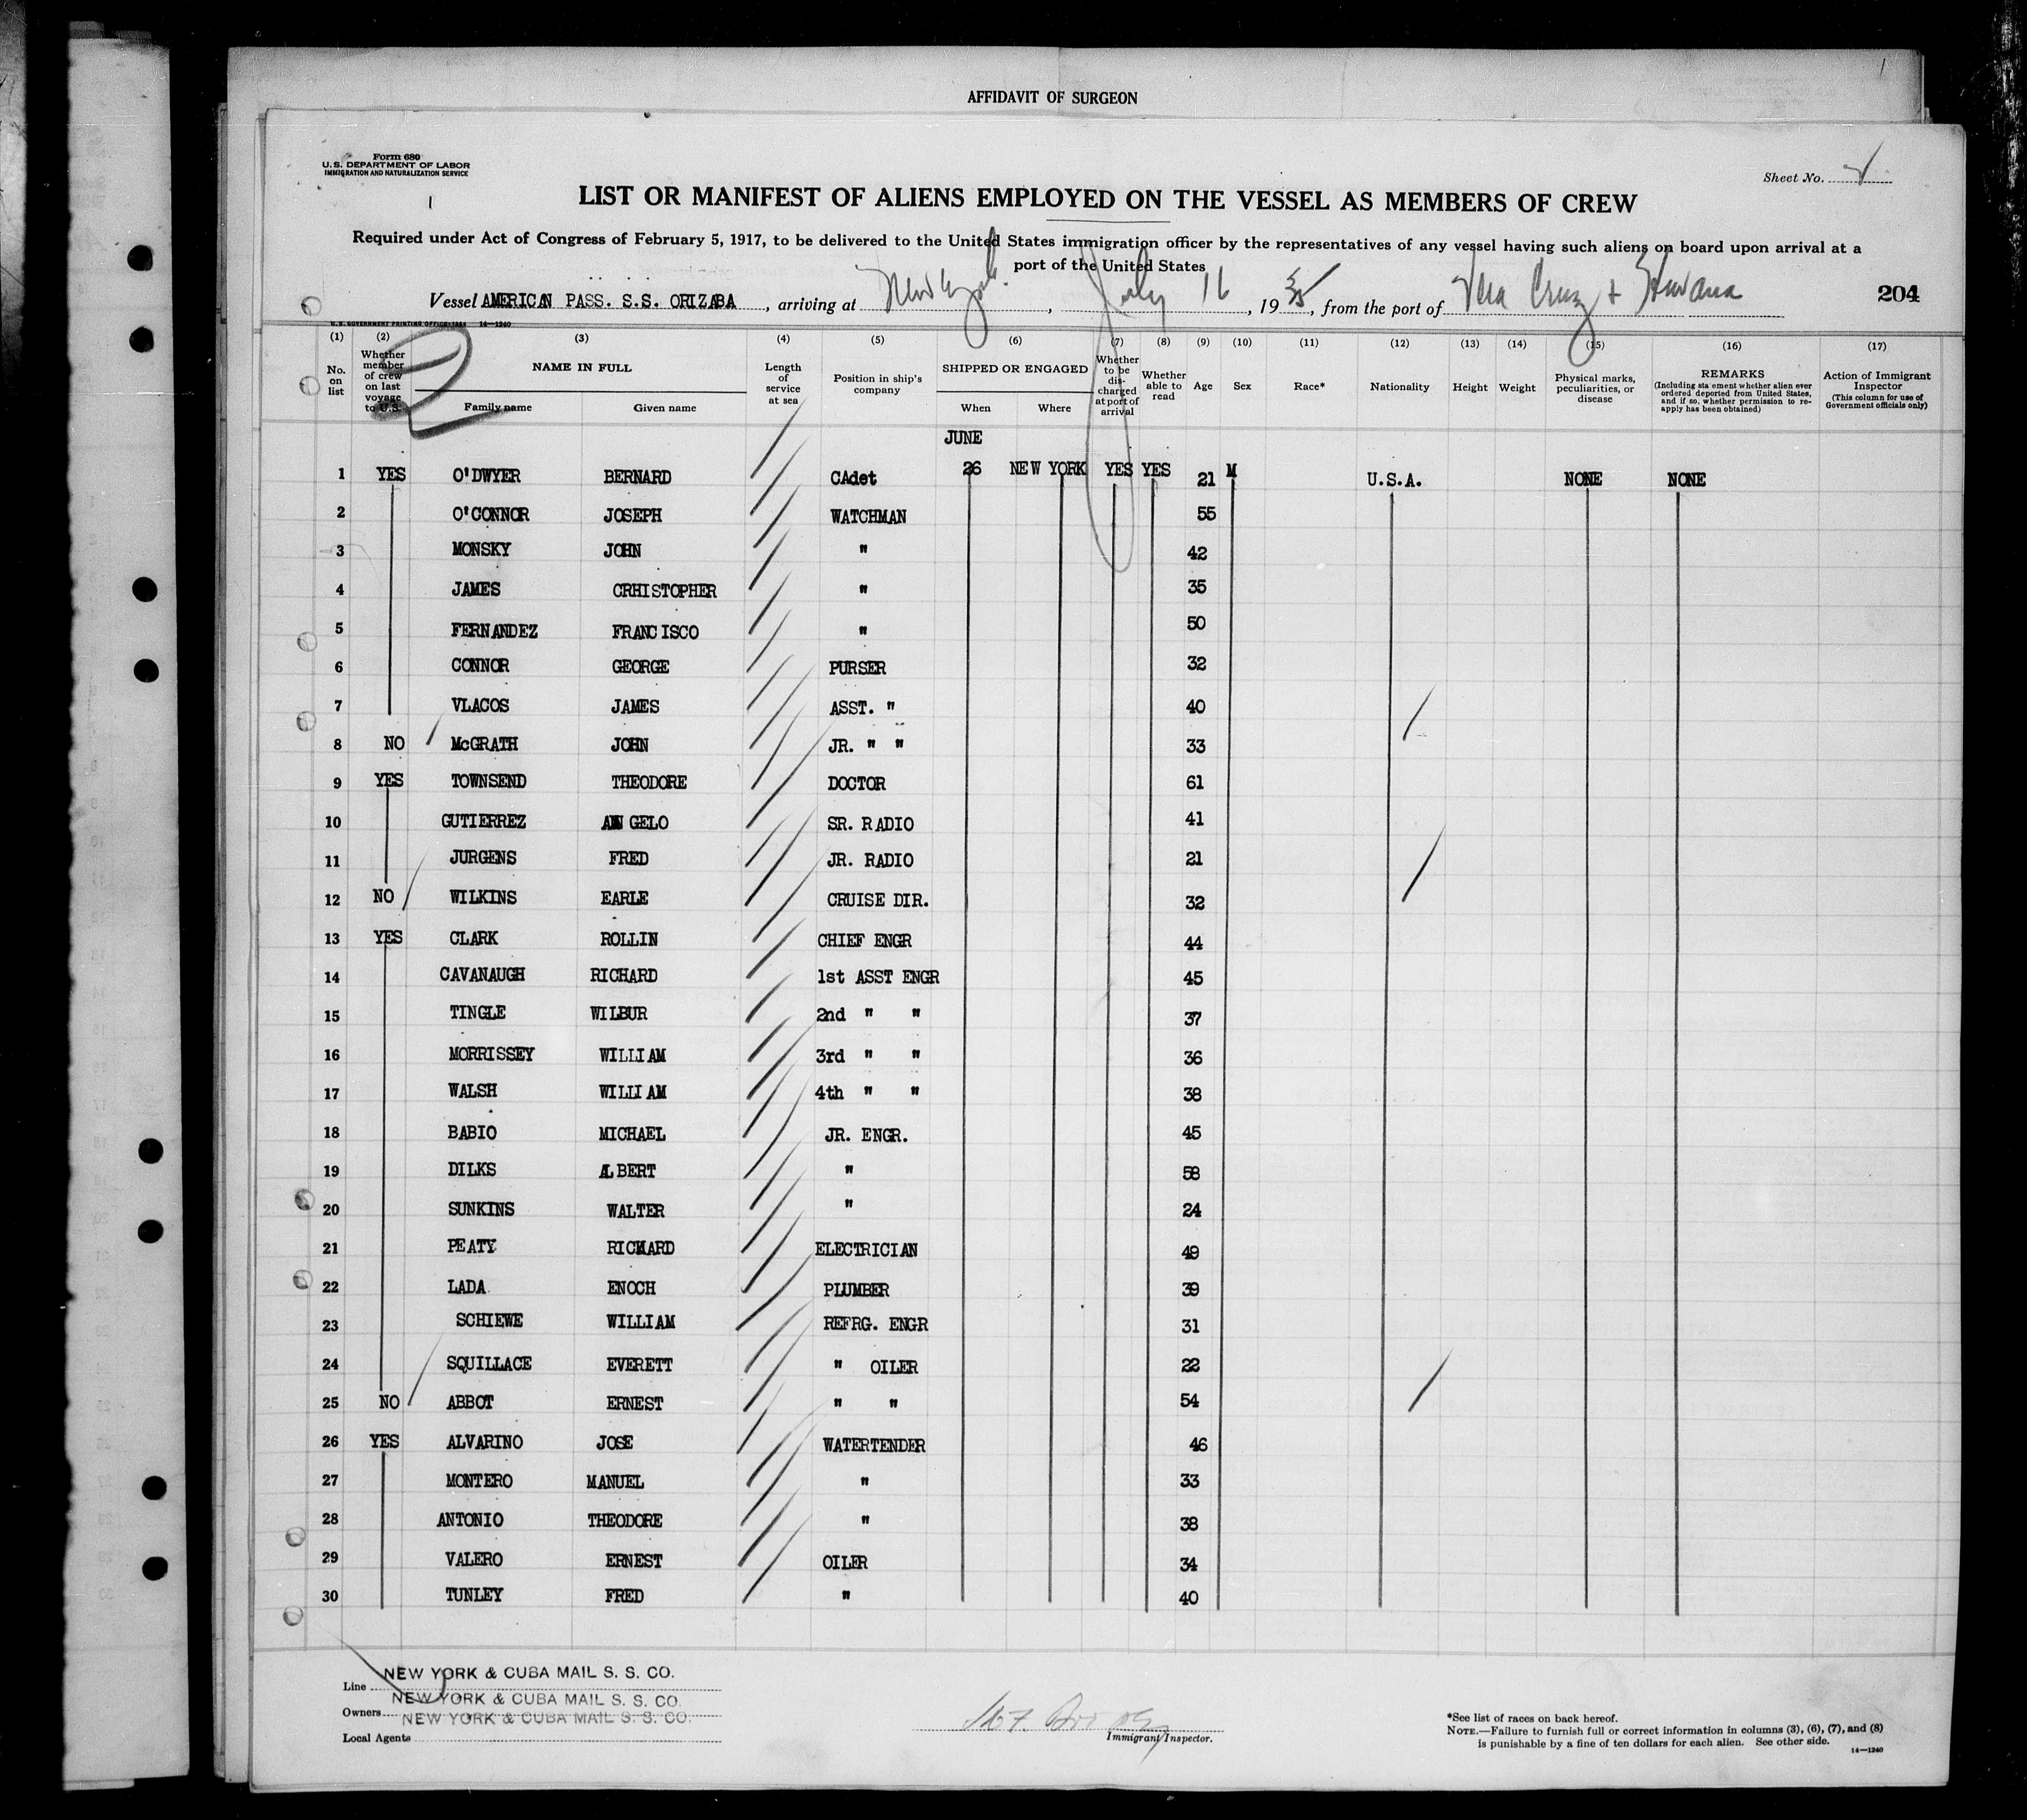 AFFIDAVIT OF SURGEON
Form 680
U.S. DEPARTMENT OF LABOR
IMMIGRATION AND NATURALIZATION SERVICE
Sheet No.
LIST OR MANIFEST OF ALIENS EMPLOYED ON THE VESSEL AS MEMBERS OF CREW
Required under Act of Congress of February 5, 1917, to be delivered to the United States immigration officer by the representatives of any vessel having such aliens on board upon arrival at a
port of the United States
Vessel AMERICAN PASS. S.S. ORIZABA, arriving at New York, July 16, 1935, from the port of Vera Cruz + Havana 204
U.S. GOVERNMENT PRINTING OFFICE 14—1240
(1) (2) (3) (4) (5) (6) (7) (8) (9) (10) (11) (12) (13) (14) (15) (16) (17)
No. on list
Whether member of crew on last voyage to U.S.
NAME IN FULL
Family name Given name
Length of service at sea
Position in ship's company
SHIPPED OR ENGAGED
When Where
Whether to be discharged at port of arrival
Whether able to read
Age
Sex
Race*
Nationality
Height
Weight
Physical marks, peculiarities, or disease
REMARKS
(Including sta ement whether alien ever ordered deported from United States, and if so, whether permission to reapply has been obtained)
Action of Immigrant Inspector
(This column for use of Government officials only)
JUNE
1 YES O'DWYER BERNARD CAdet 26 NEW YORK YES YES 21 M U.S.A. NONE NONE
2 O'CONNOR JOSEPH WATCHMAN 55
3 MONSKY JOHN " 42
4 JAMES CRHISTOPHER " 35
5 FERNANDEZ FRANCISCO " 50
6 CONNOR GEORGE PURSER 32
7 VLACOS JAMES ASST. " 40
8 NO McGRATH JOHN JR. " " 33
9 YES TOWNSEND THEODORE DOCTOR 61
10 GUTIERREZ ANGELO SR. RADIO 41
11 JURGENS FRED JR. RADIO 21
12 NO WILKINS EARLE CRUISE DIR. 32
13 YES CLARK ROLLIN CHIEF ENGR 44
14 CAVANAUGH RICHARD 1st ASST ENGR 45
15 TINGLE WILBUR 2nd " " 37
16 MORRISSEY WILLIAM 3rd " " 36
17 WALSH WILLIAM 4th " " 38
18 BABIO MICHAEL JR. ENGR. 45
19 DILKS ALBERT " 58
20 SUNKINS WALTER " 24
21 PEATY RICHARD ELECTRICIAN 49
22 LADA ENOCH PLUMBER 39
23 SCHIEWE WILLIAM REFRG. ENGR 31
24 SQUILLACE EVERETT " OILER 22
25 NO ABBOT ERNEST " " 54
26 YES ALVARINO JOSE WATERTENDER 46
27 MONTERO MANUEL " 33
28 ANTONIO THEODORE " 38
29 VALERO ERNEST OILER 34
30 TUNLEY FRED " 40
Line NEW YORK & CUBA MAIL S. S. CO.
Owners NEW YORK & CUBA MAIL S. S. CO.
NEW YORK & CUBA MAIL S. S. CO.
Local Agents
Immigrant Inspector.
*See list of races on back hereof.
NOTE.—Failure to furnish full or correct information in columns (3), (6), (7), and (8)
is punishable by a fine of ten dollars for each alien. See other side.
14—1240